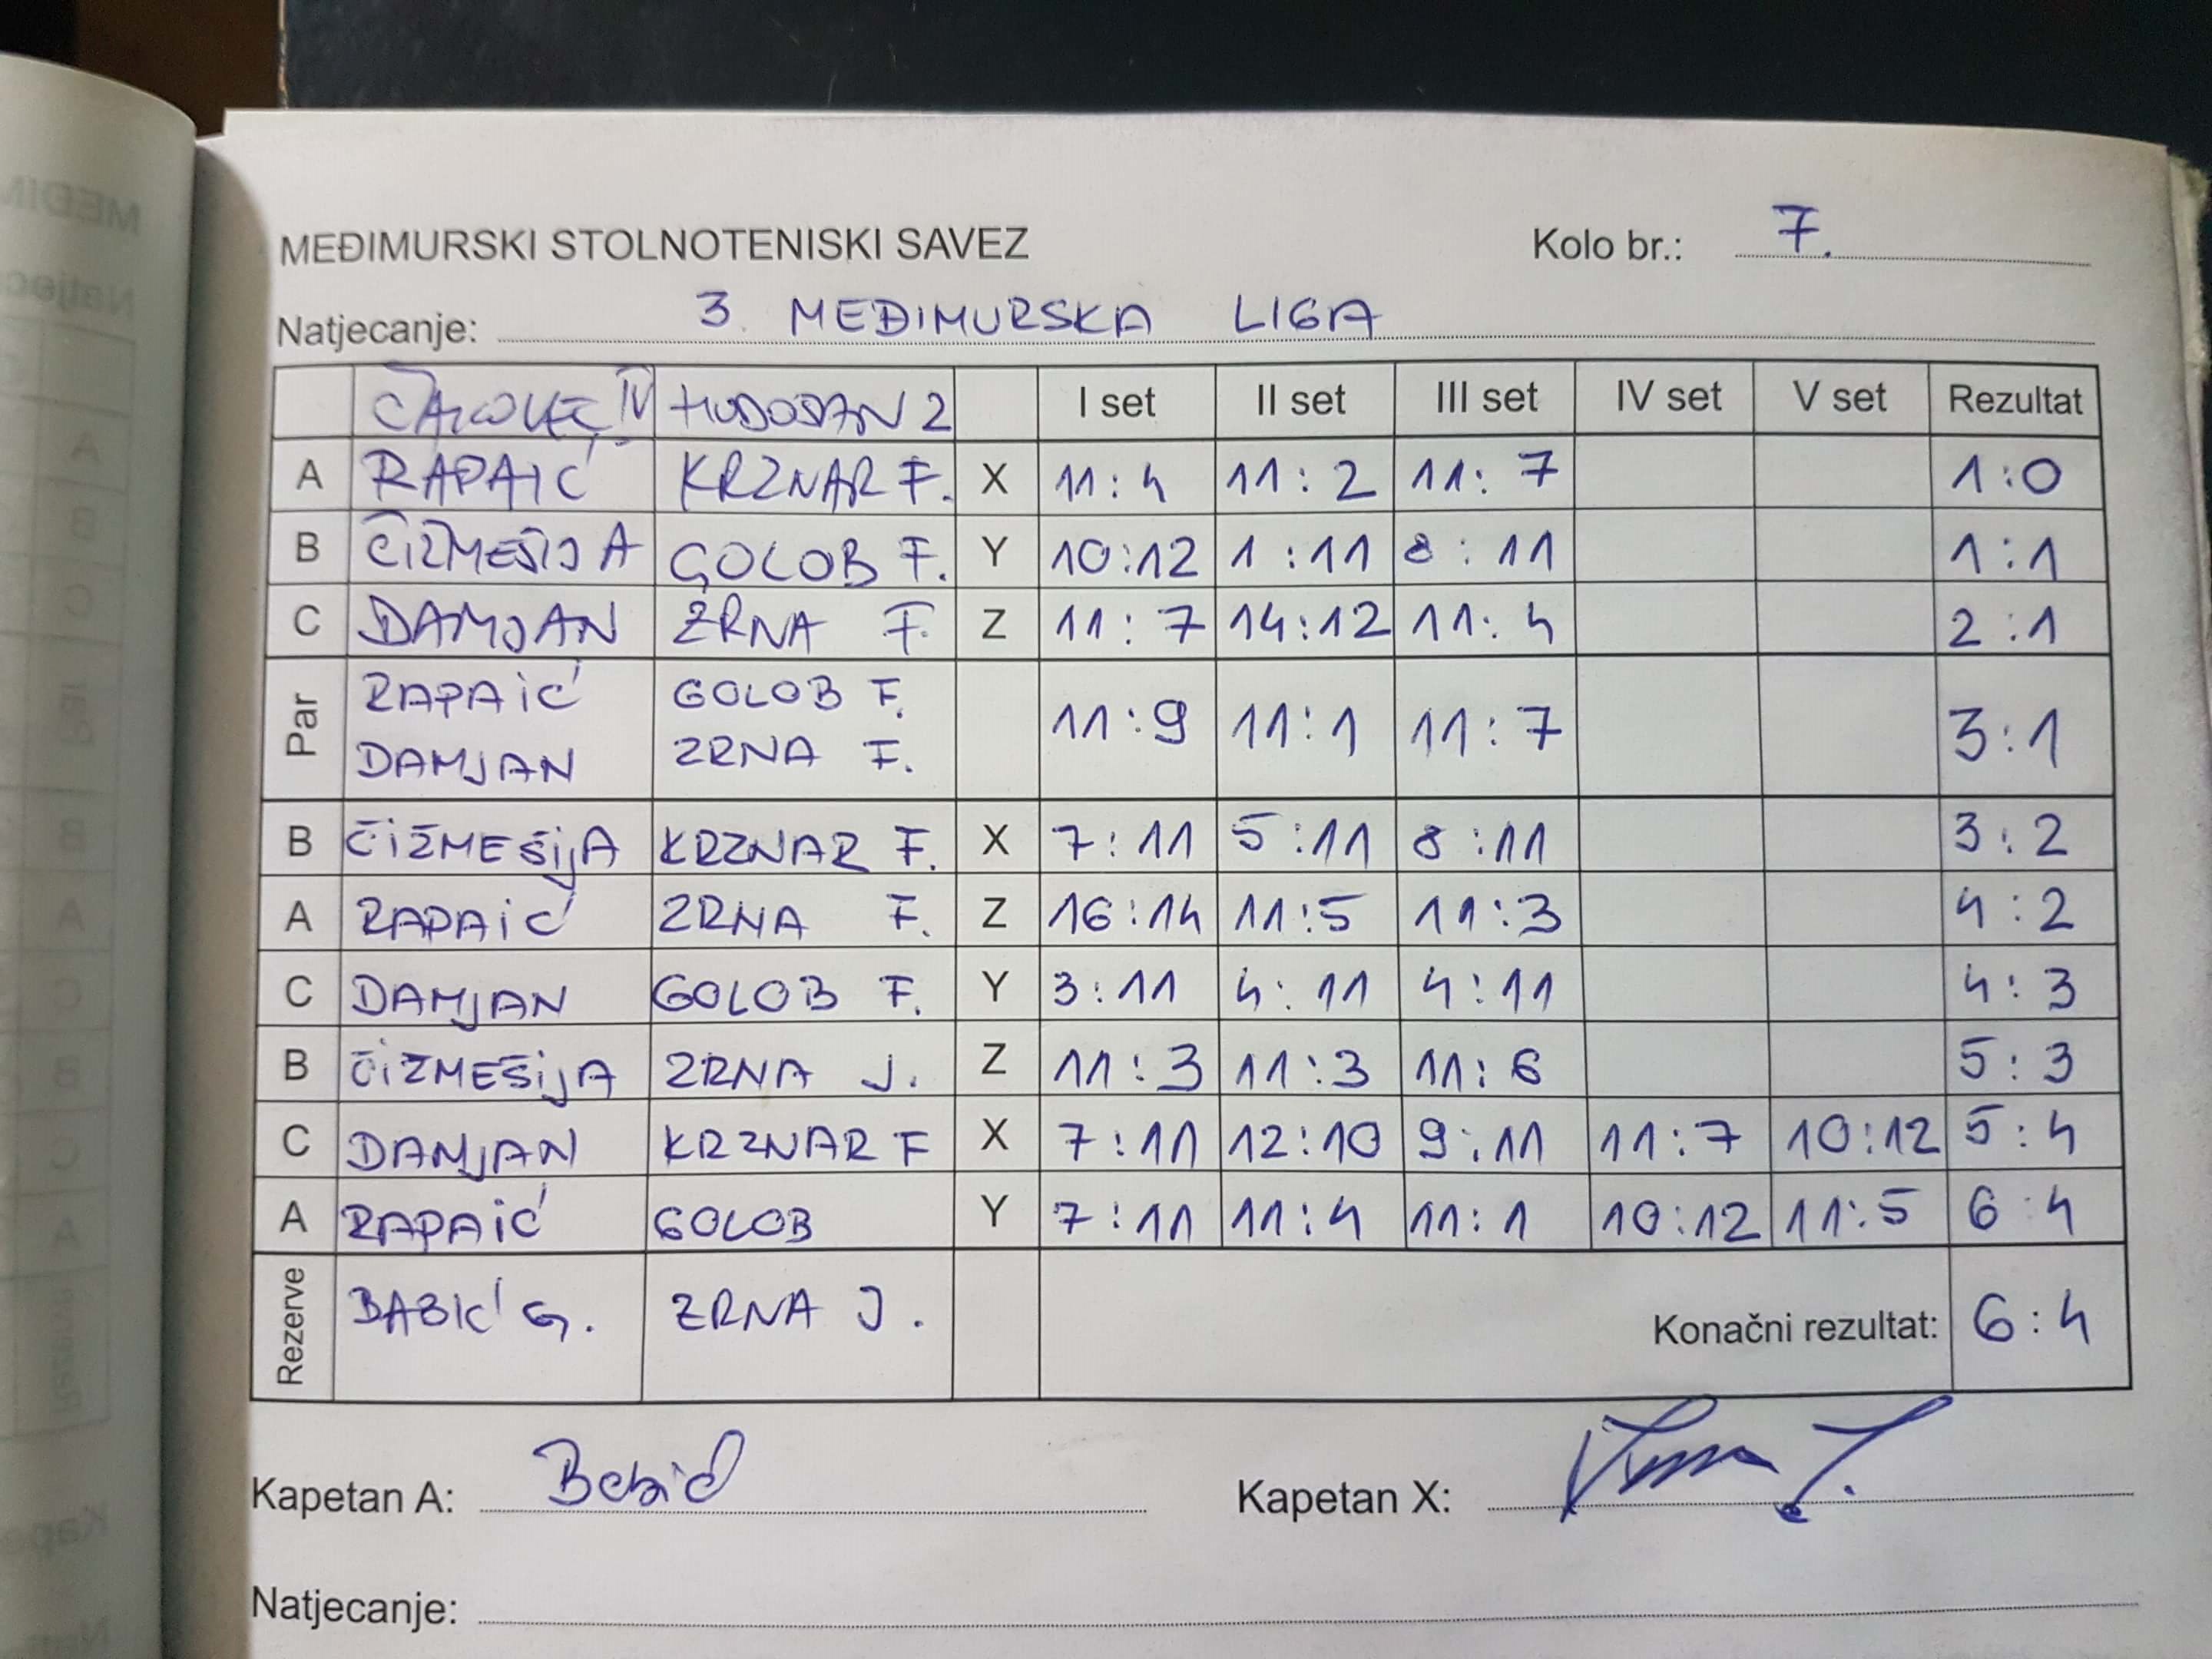 MEĐIMURSKI STOLNOTENISKI SAVEZ Kolo br.: 7.
Natjecanje: 3. MEĐIMURSKA LIGA
ČAKOVEC IV HODOŠAN 2 I set II set III set IV set V set Rezultat
A RAPAIĆ KRZNAR F. X 11:4 11:2 11:7 1:0
B ČIŽMEŠIJA GOLOB F. Y 10:12 1:11 8:11 1:1
C DAMJAN ZRNA F. Z 11:7 14:12 11:4 2:1
Par RAPAIĆ GOLOB F. 11:9 11:1 11:7 3:1
DAMJAN ZRNA F.
B ČIŽMEŠIJA KRZNAR F. X 7:11 5:11 8:11 3:2
A RAPAIĆ ZRNA F. Z 16:14 11:5 11:3 4:2
C DAMJAN GOLOB F. Y 3:11 4:11 4:11 4:3
B ČIŽMEŠIJA ZRNA J. Z 11:3 11:3 11:6 5:3
C DAMJAN KRZNAR F X 7:11 12:10 9:11 11:7 10:12 5:4
A RAPAIĆ GOLOB Y 7:11 11:4 11:1 10:12 11:5 6:4
Rezerve BABIĆ G. ZRNA J. Konačni rezultat: 6:4
Kapetan A: Babić Kapetan X:
Natjecanje: